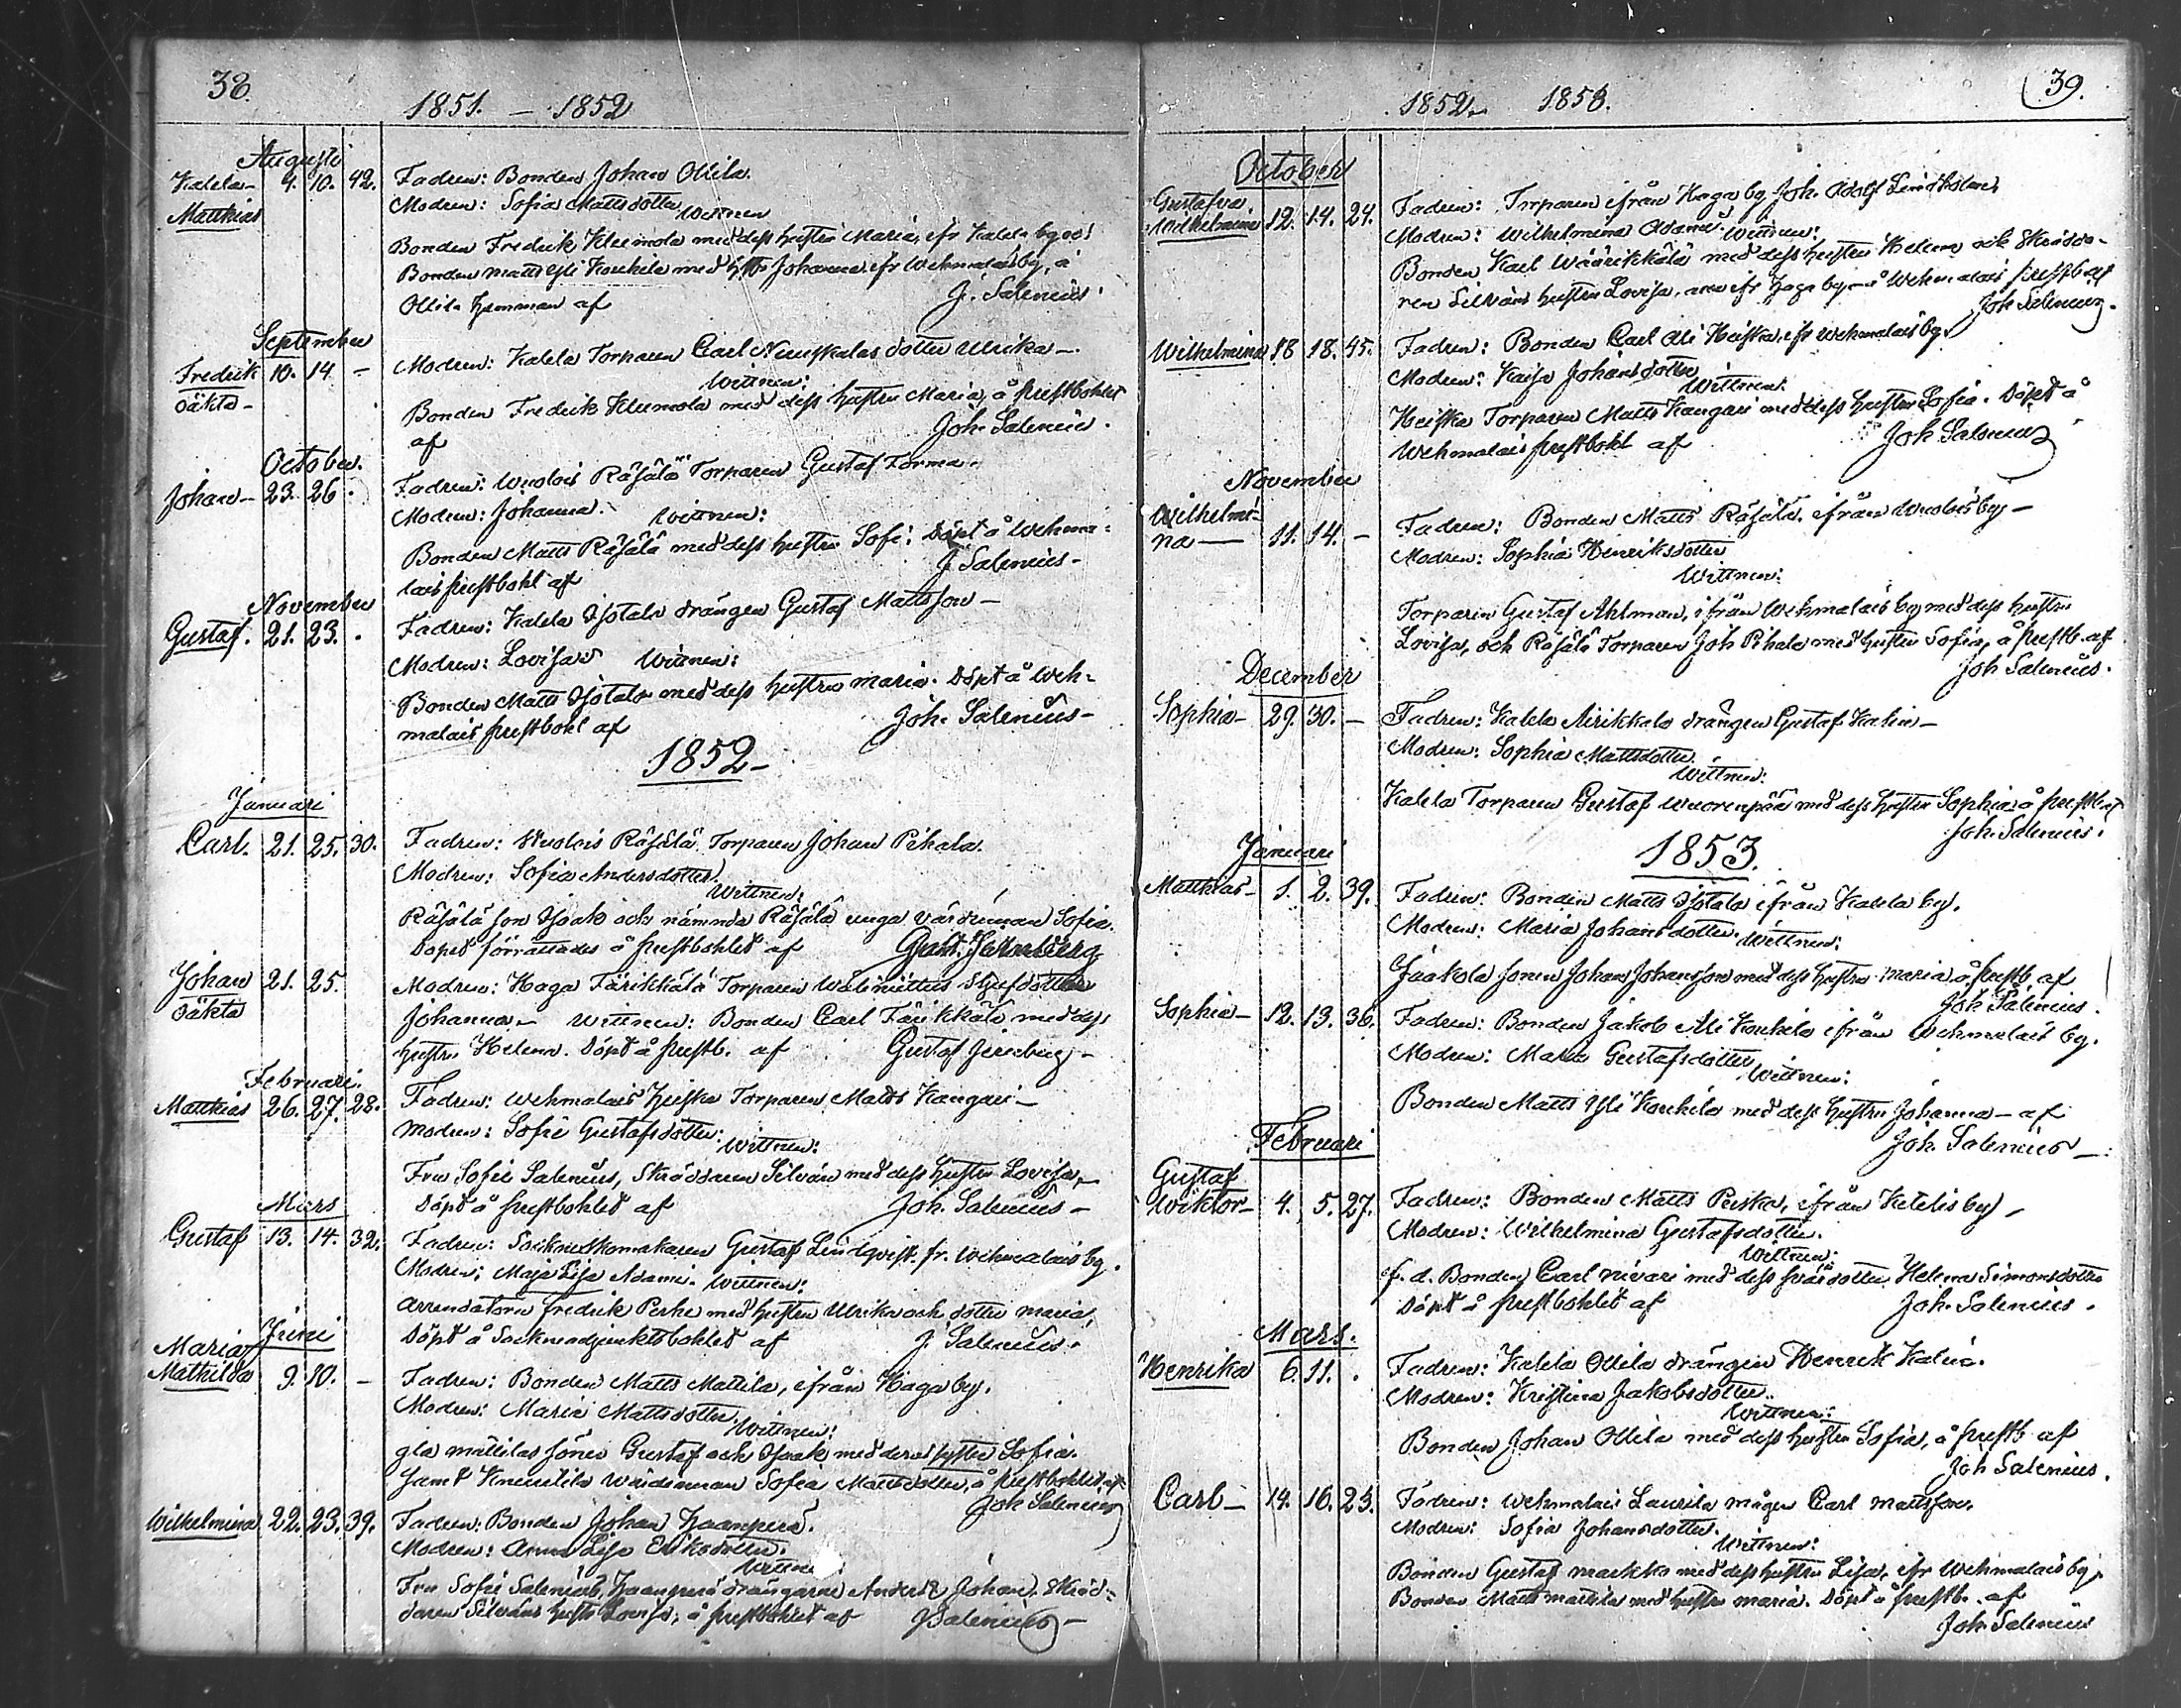 38.
1851. — 1852
Augusti
Kalela — 9. 10. 42. Fadren: Bonden Johan Ollila.
Matthias
Modren: Sofia Mattsdotter
Wittnen
Bonden Fredrik Kleemola med dess hustru Maria, ifr Kalela by och
Bonden Matts Yli Koukila med hstr Johanna ifr Wehmalais by, å
Ollila hemman af J. Salenius.
September
Fredrik 10. 14 — Modren: Kalela Torparen Carl dotter Ulrika —
oäkta —
Wittnen:
Bonden Fredrik Kleemola med dess hustru Maria, å prestbohlet
af Joh. Salenius.
October.
Johan — 23. 26. Fadren: Wuolois Räsälä Torparen Gustaf Forma.
Modren: Johanna. Wittnen:
Bonden Matts Räsälä med dess hustru Sofi; döpt å Wehma-
lais prestbohl af J. Salenius —
November
Gustaf. 21. 23. . Fadren: Kalela Isotalo drängen Gustaf Mattsson —
Modren: Lovisa Wittnen:
Bonden Matts Isotalo med dess hustru Maria. Döpt å Weh-
malais prestbohl af Joh. Salenius —
1852 —
Januari
Carl. 21. 25. 30. Fadren: Wuolois Räsälä Torparen Johan Pihala.
Modren: Sofia Andersdotter.
Wittnen:
Räsälä son Isaak och nämnda Räsälä unga värdinnan Sofia.
Dopet förrättades å prestbohlet af Gust.
Johan 21. 25. Modren: Haga Färikkälä Torparen styfdotter
oäkta
Johanna. — Wittnen: Bonden Carl Färikkälä med dess
hustru Helena. Döpt å prestb. af Gustaf
Februari.
Matthias 26. 27. 28. Fadren: Wehmalais Heiska Torparen Matts Kangari —
Modren: Sofie Gustafsdotter.
Wittnen:
Fru Sofie Salenius, Skräddaren Silvän med dess hustru Lovisa, —
Döpt å prestbohlet af Joh. Salenius —
Mars
Gustaf 13. 14. 32. Fadren: Sockneskomakaren Gustaf Lindqvist. fr. Wehmalais by.
Modren: Maja Lisa Adami. Wittnen:
Arrendatorn Fredrik Perhe med hustru Ulrika och dotter Maria,
Döpt å Sockneadjunktsbohlet af J. Salenius.
Juni
Maria
Mathilda 9. 10. — Fadren: Bonden Matts Mattila, ifrån Haga by.
Modren: Maria Mattsdotter.
Wittnen:
gla Mattilas söner Gustaf och Isaak med deras syster Sofia.
samt Knuutila Wärdinnan Sofia Mattsdotter, å prestbohlet af
Joh Salenius
Wilhelmina 22. 23. 39. Fadren: Bonden Johan Haanperä.
Modren: Anna Lisa Eriksdotter.
Wittnen:
Fru Sofie Salenius, Haanperä drängarne Anders & Johan, Skräd-
daren Silväns hustr Lovisa; å prestbohlet af J Salenius —
39.
1852. 1853.
October
Gustafva
Wilhelmina 12. 14. 24. Fadren: Torparen ifrån Haga by Joh. Adolf Lindholm
Modren: Wilhelmina Adami. Wittnen:
Bonden Karl Wäärikkälä med dess hustru Helena och Skrädda-
ren Silväns hustru Lovisa, ifr Haga by — å Wehmalais prestb af
Joh Salenius.
Wilhelmina 18 18. 45. Fadren: Bonden Carl Ali Heiska, ifr Wehmalais by
Modren: Kaisa Johansdotter
Wittnen:
Heiska Torparen Matts Kangari med dess hustru Sofia. Döpt å
Wehmalais prestbohl af Joh Salenius
November
Wilhelmi-
na — 11. 14. — Fadren: Bonden Matts Räsälä. ifrån Wuolois by —
Modren: Sophia Henriksdotter
Wittnen:
Torparen Gustaf Ahlman, ifrån Wehmalais by med dess hustru
Lovisa, och Räsälä Torparen Joh Pihala med hustru Sofia, å prestb. af
Joh Salenius.
December
Sophia — 29. 30. — Fadren: Kalela Airikkala drängen Gustaf Kalin —
Modren: Sophia Mattsdotter
Wittnen:
Kalela Torparen Gustaf Wuorenpää med dess hustru Sophia å prestb. af
Joh. Salenius.
1853.
Januari
Matthias — 1. 2. 39. Fadren: Bonden Matts Isotalo ifrån Kalela by.
Modren: Maria Johansdotter. Wittnen:
Jaakola sonen Johan Johansson med dess hustru Maria å prestb. af
Joh Salenius.
Sophia — 12. 13. 36. Fadren: Bonden Jakob Ali Koukila ifrån Wehmalais by.
Modren: Maria Gustafsdotter
Wittnen:
Bonden Matts Yli Koukila med dess hustru Johanna — af
Joh. Salenius —
Februari
Gustaf
Wiktor — 4. 5. 27. Fadren: Bonden Matts Peska, ifrån Ketelis by —
Modren: Wilhelmina Gustafsdotter.
Wittnen:
f. d. Bonden Carl Nivari med dess Helena Simonsdotter
Döpt å prestbohlet af Joh. Salenius.
Mars.
Henrika 6. 11. . Fadren: Kalela Ollila drängen Henrik Kalin.
Modren: Kristina Jakobsdotter.
Wittnen:
Bonden Johan Ollila med dess hustru Sofia, å prestb af
Joh Salenius.
Carl — 14. 16. 23. Fadren: Wehmalais Laurila mågen Carl Mattsson.
Modren: Sofia Johansdotter.
Wittnen:
Bonden Gustaf Markka med dess hustru Lisa, ifr Wehmalais by,
Bonden Matts Mattila med hustru Maria. Döpt å prestb. af
Joh Salenius